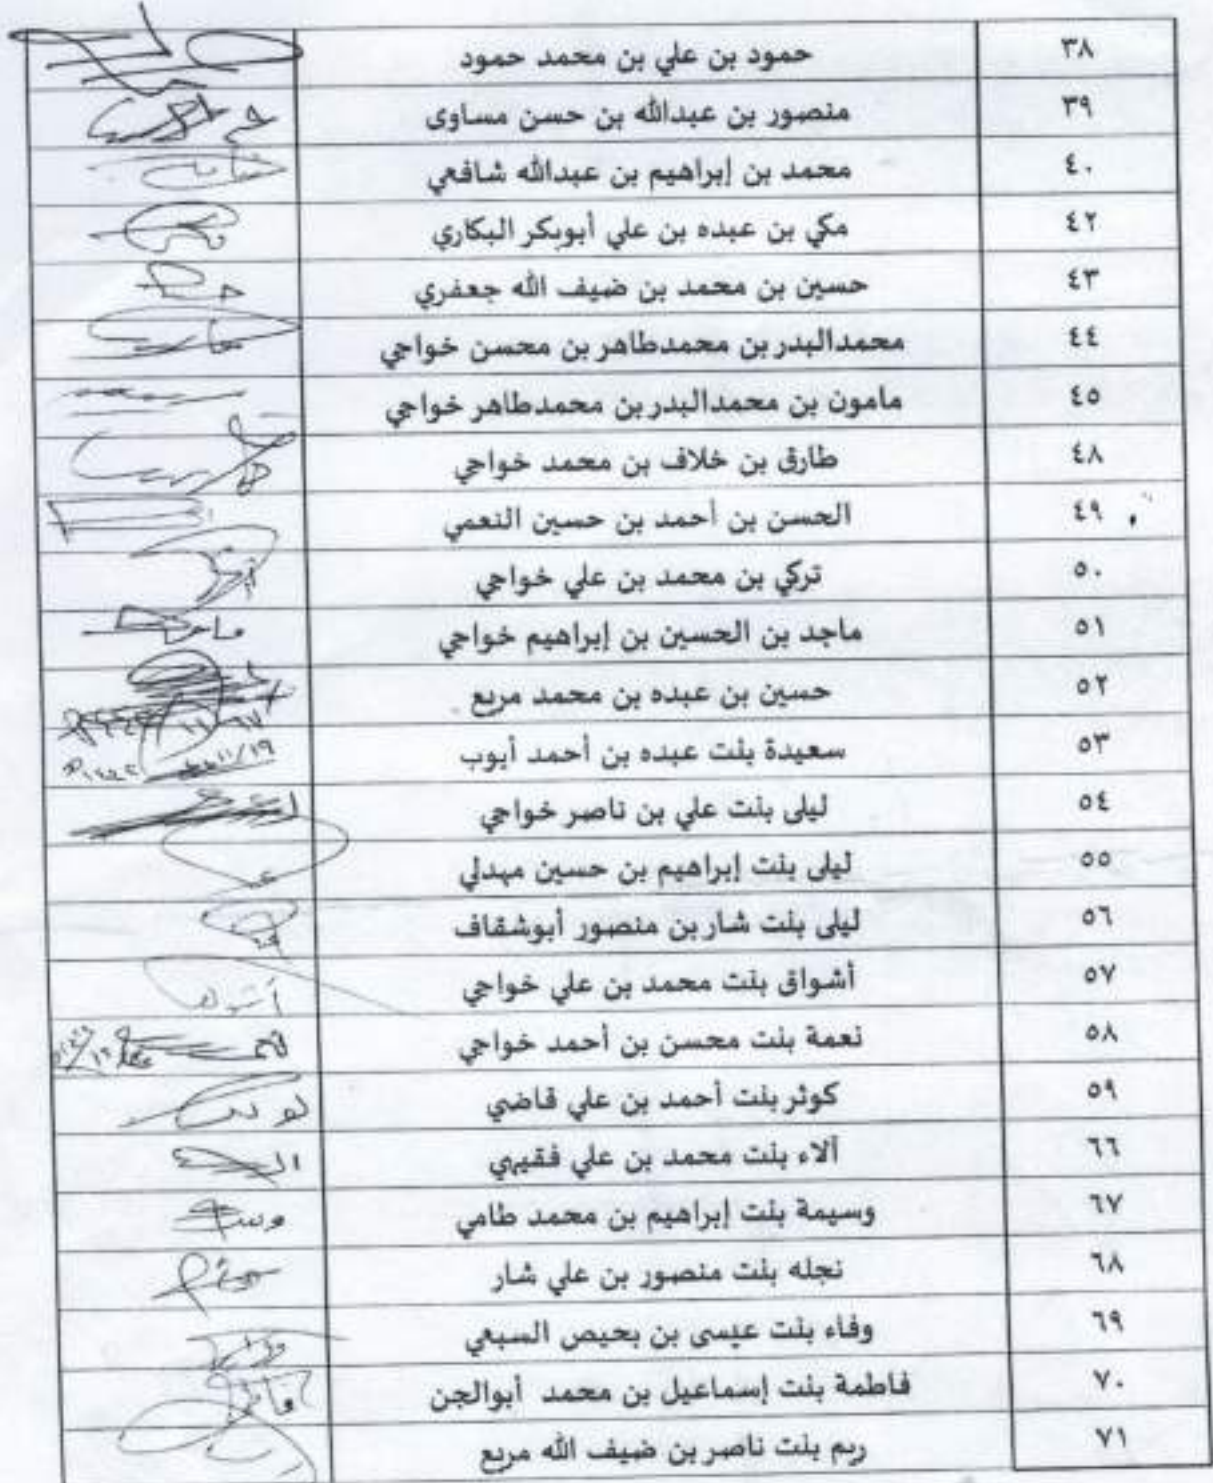 ٣٨ حمود بن علي بن محمد حمود
٣٩ منصور بن عبدالله بن حسن مساوى
٤٠ محمد بن إبراهيم بن عبدالله شافعي
٤٢ مكي بن عبده بن علي أبوبكر البكاري
٤٣ حسين بن محمد بن ضيف الله جعفري
٤٤ محمدالبدر بن محمدطاهر بن محسن خواجي
٤٥ مامون بن محمدالبدر بن محمدطاهر خواجي
٤٨ طارق بن خلاف بن محمد خواجي
٤٩ الحسن بن أحمد بن حسين النعمي
٥٠ تركي بن محمد بن علي خواجي
٥١ ماجد بن الحسين بن إبراهيم خواجي ماجد
٥٢ حسين بن عبده بن محمد مريع
٥٣ سعيدة بنت عبده بن أحمد أيوب
٥٤ ليلى بنت علي بن ناصر خواجي
٥٥ ليلى بنت إبراهيم بن حسين مهدلي
٥٦ ليلى بنت شار بن منصور أبوشقاف
٥٧ أشواق بنت محمد بن علي خواجي
٥٨ نعمة بنت محسن بن أحمد خواجي
٥٩ كوثر بنت أحمد بن علي قاضي
٦٦ آلاء بنت محمد بن علي فقيهي
٦٧ وسيمة بنت إبراهيم بن محمد طامي
٦٨ نجله بنت منصور بن علي شار
٦٩ وفاء بنت عيسى بن بحيص السبعي
٧٠ فاطمة بنت إسماعيل بن محمد أبوالجن
٧١ ريم بنت ناصر بن ضيف الله مريع